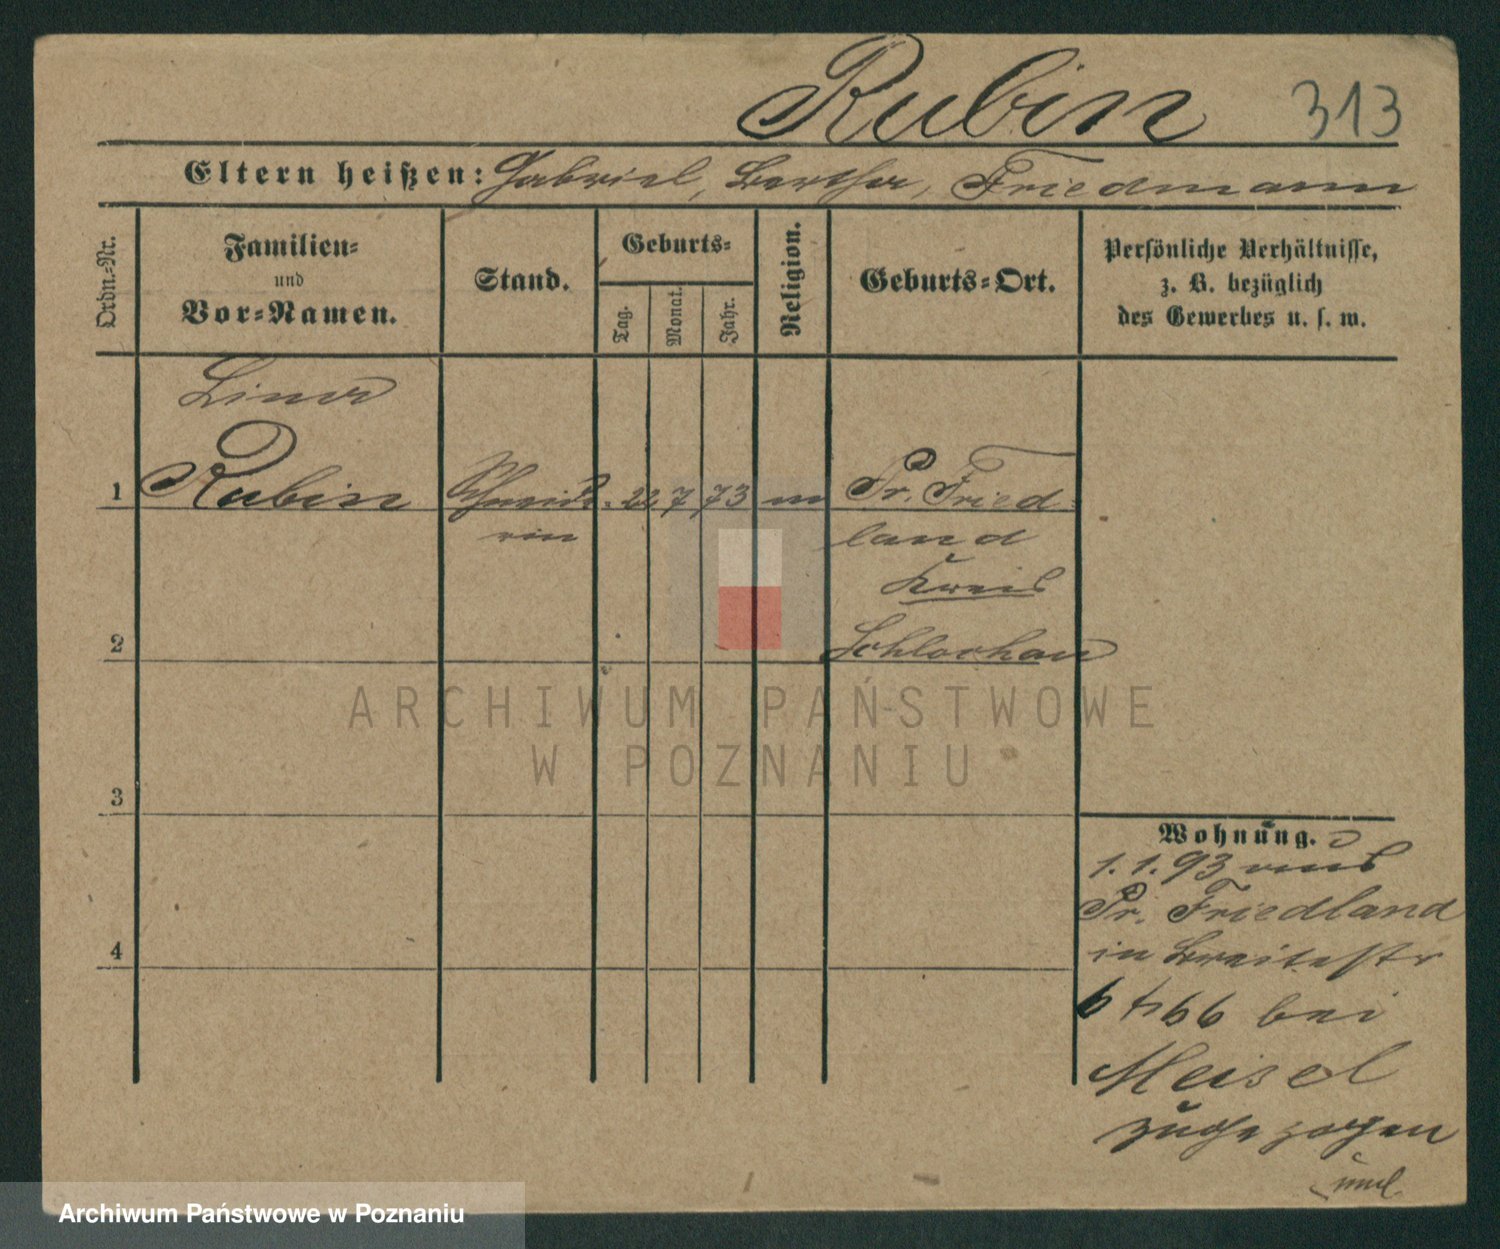 Rubin 313
Eltern heißen: Gabriel, Bertha, Friedmann
Ordn.-Nr.
Familien-
und
Vor-Namen.
Stand.
Geburts-
Tag.
Monat.
Jahr.
Religion.
Geburts-Ort.
Persönliche Verhältnisse,
z. B. bezüglich
des Gewerbes u. s. w.
Lina
1 Rubin Schneide- 22 7 73 m Pr. Fried-
rin land
Kreis
2 Schlochau
ARCHIWUM PAŃSTWOWE
W POZNANIU
3
Wohnung.
1. 1. 93 aus
Pr. Friedland
4 in Breitestr
66 bei
Meisel
zugezogen
Archiwum Państwowe w Poznaniu